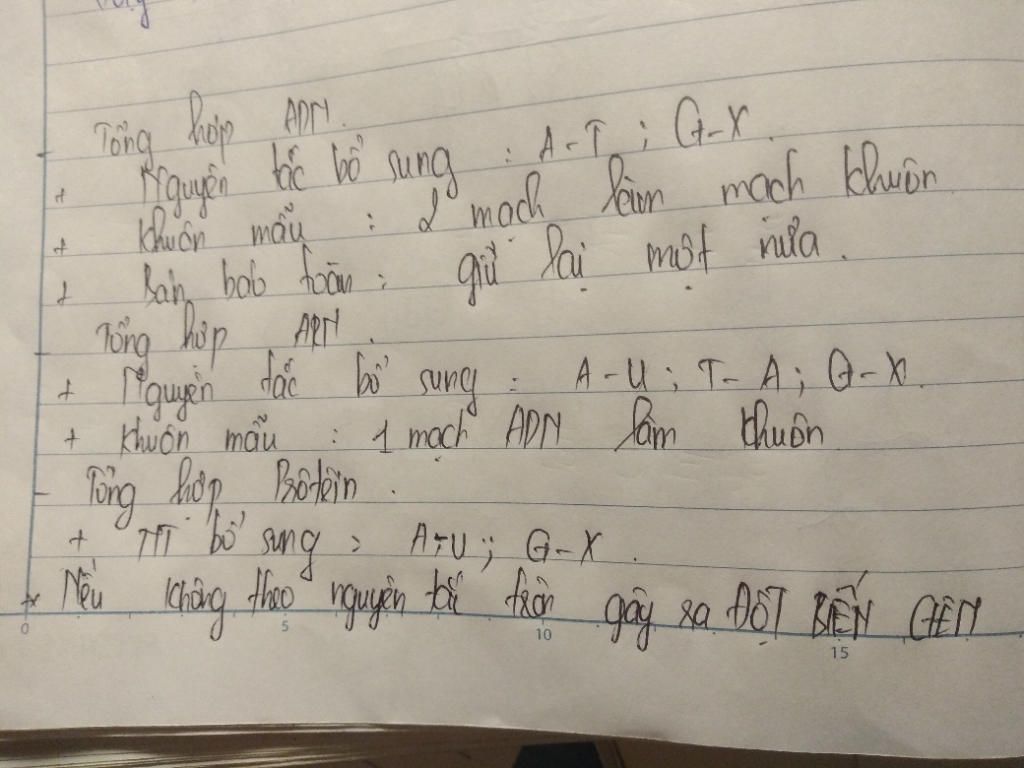 - Tổng hợp ADN.
+ Nguyên tắc bổ sung : A-T ; G-X.
+ Khuôn mẫu : 2 mạch làm mạch khuôn
+ Bán bảo toàn : giữ lại một nửa.
- Tổng hợp ARN.
+ Nguyên tắc bổ sung : A-U ; T-A ; G-X.
+ Khuôn mẫu : 1 mạch ADN làm khuôn
- Tổng hợp Prôtêin.
+ NT bổ sung : A-U ; G-X.
* Nếu không theo nguyên tắc trên gây ra ĐỘT BIẾN GEN
0 5 10 15